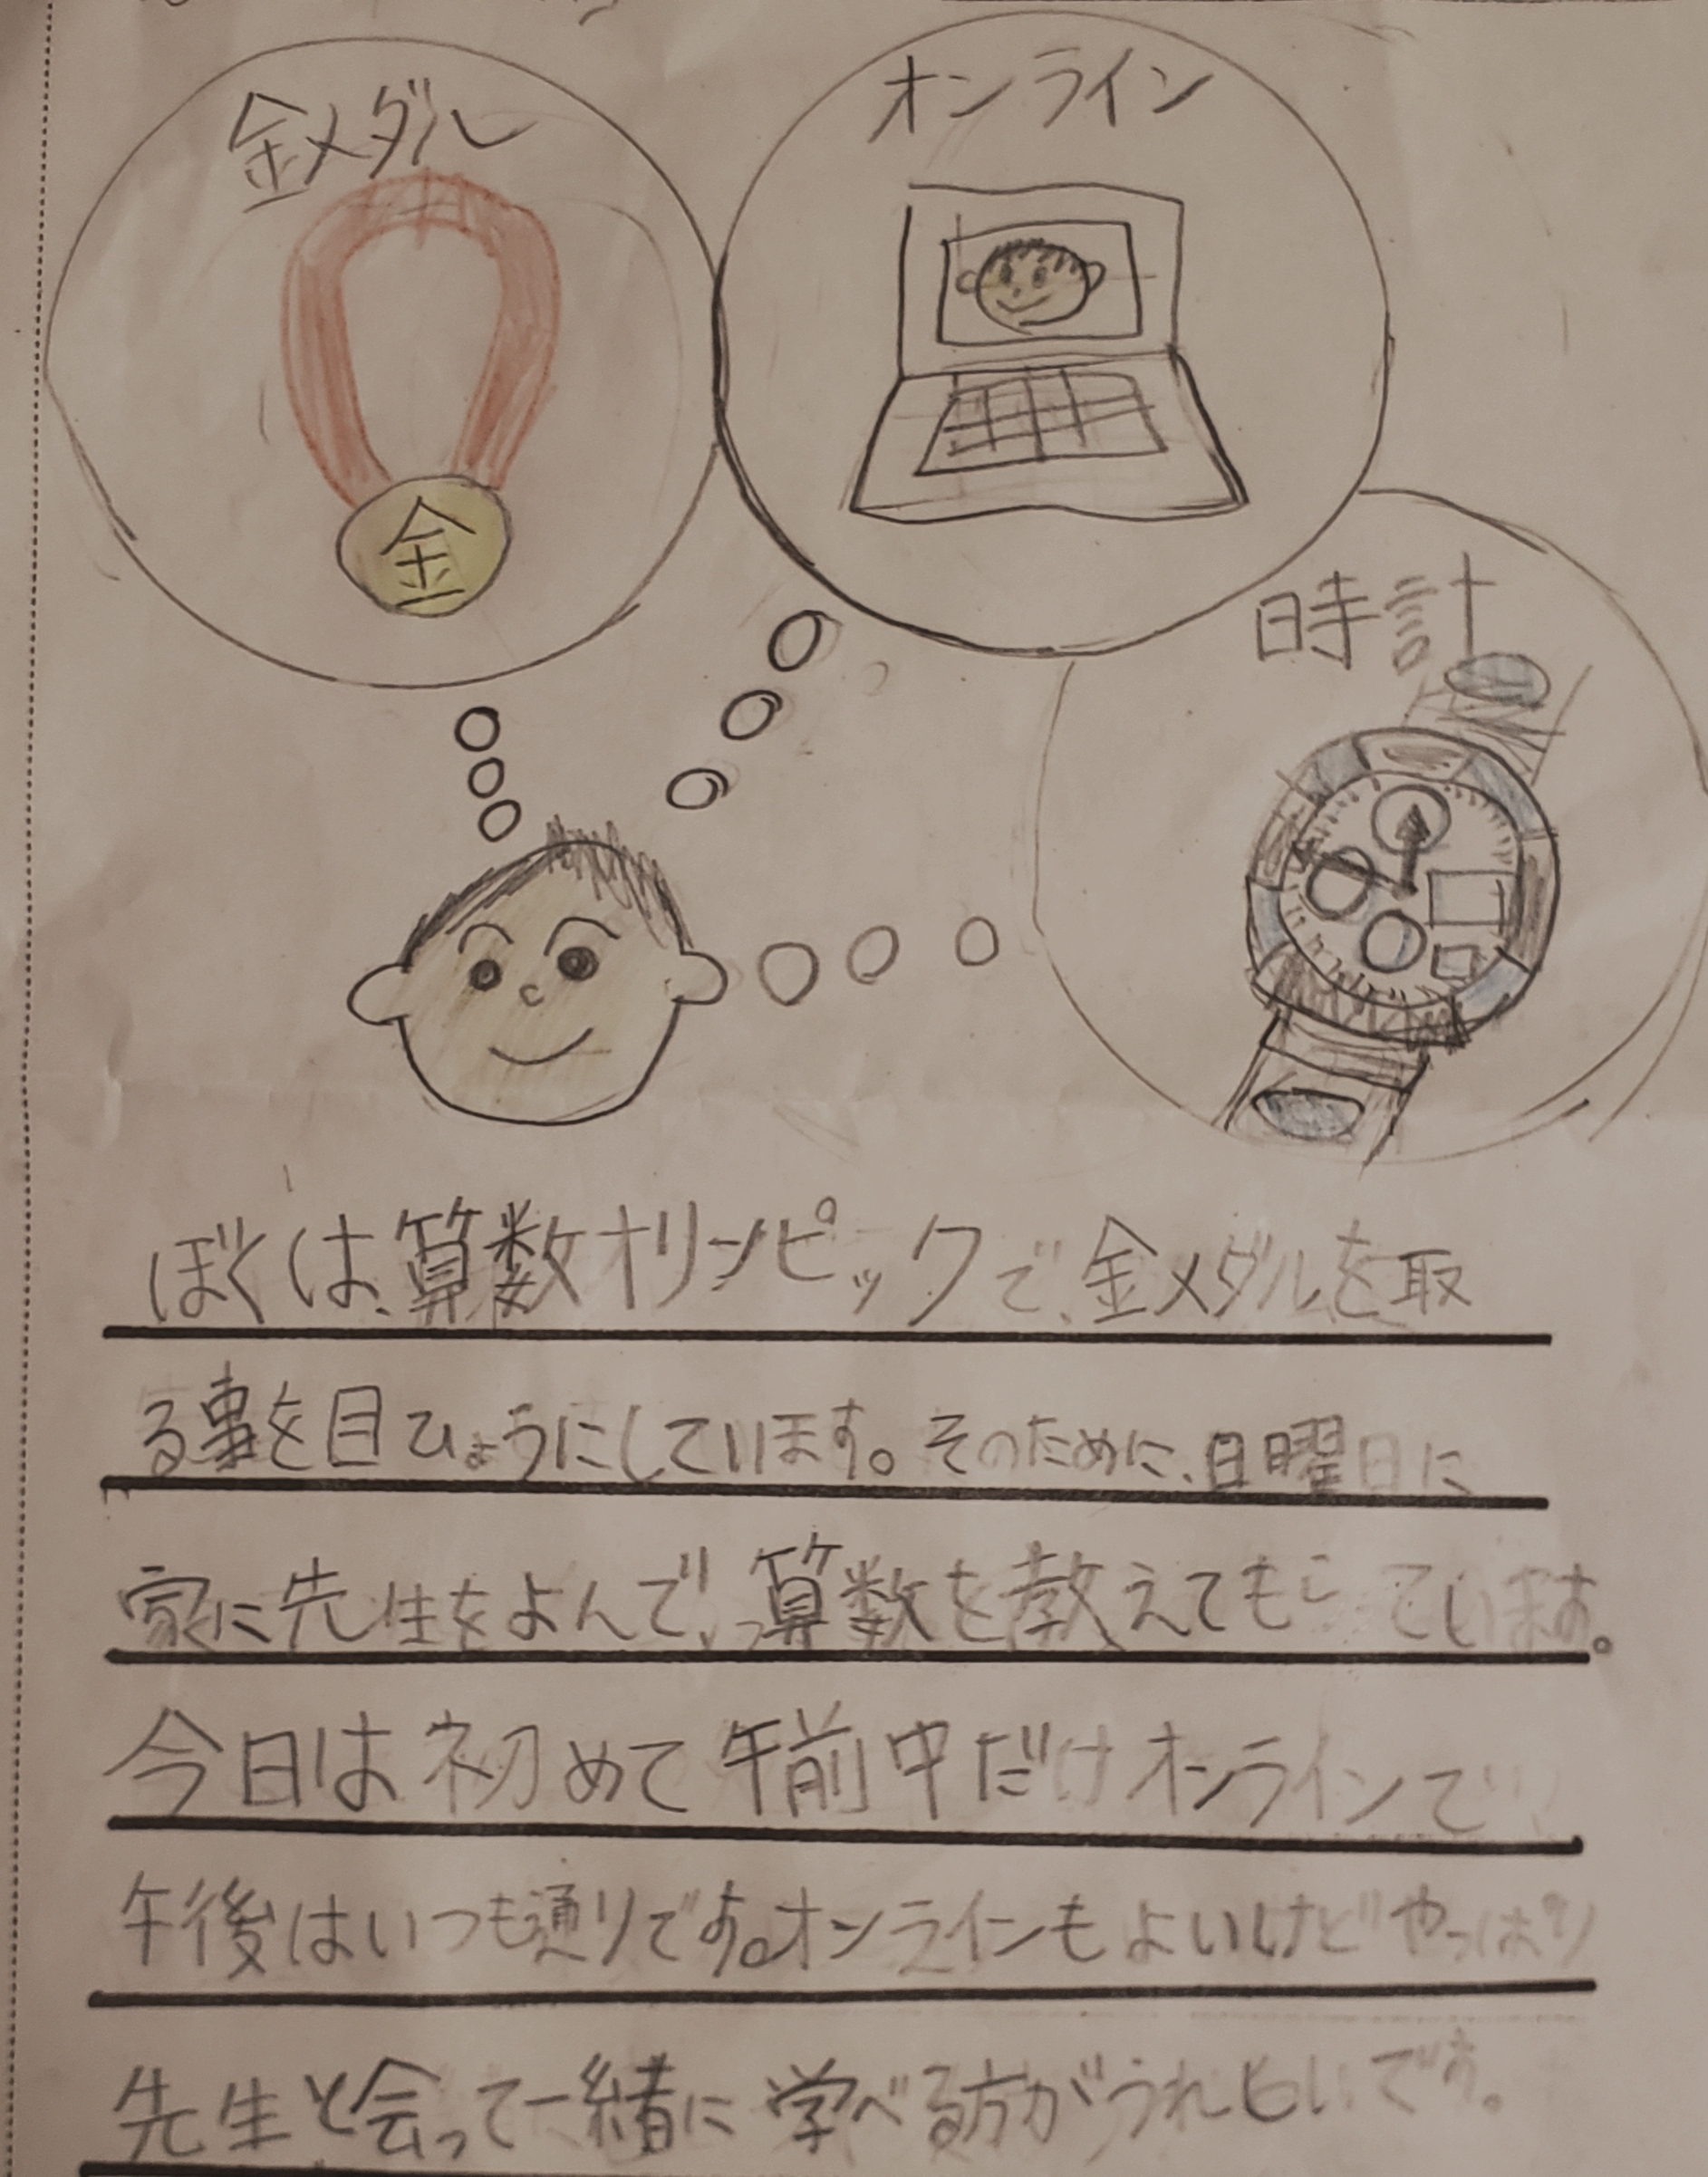 金メダル
オンライン
時計
金
ぼくは、算数オリンピックで、金メダルを取
る事を目ひょうにしています。そのために、日曜日に
家に先生をよんで、算数を教えてもらっています。
今日は初めて午前中だけオンラインで
午後はいつも通りです。オンラインもよいけどやっぱり
先生と会って一緒に学べる方がうれしいです。